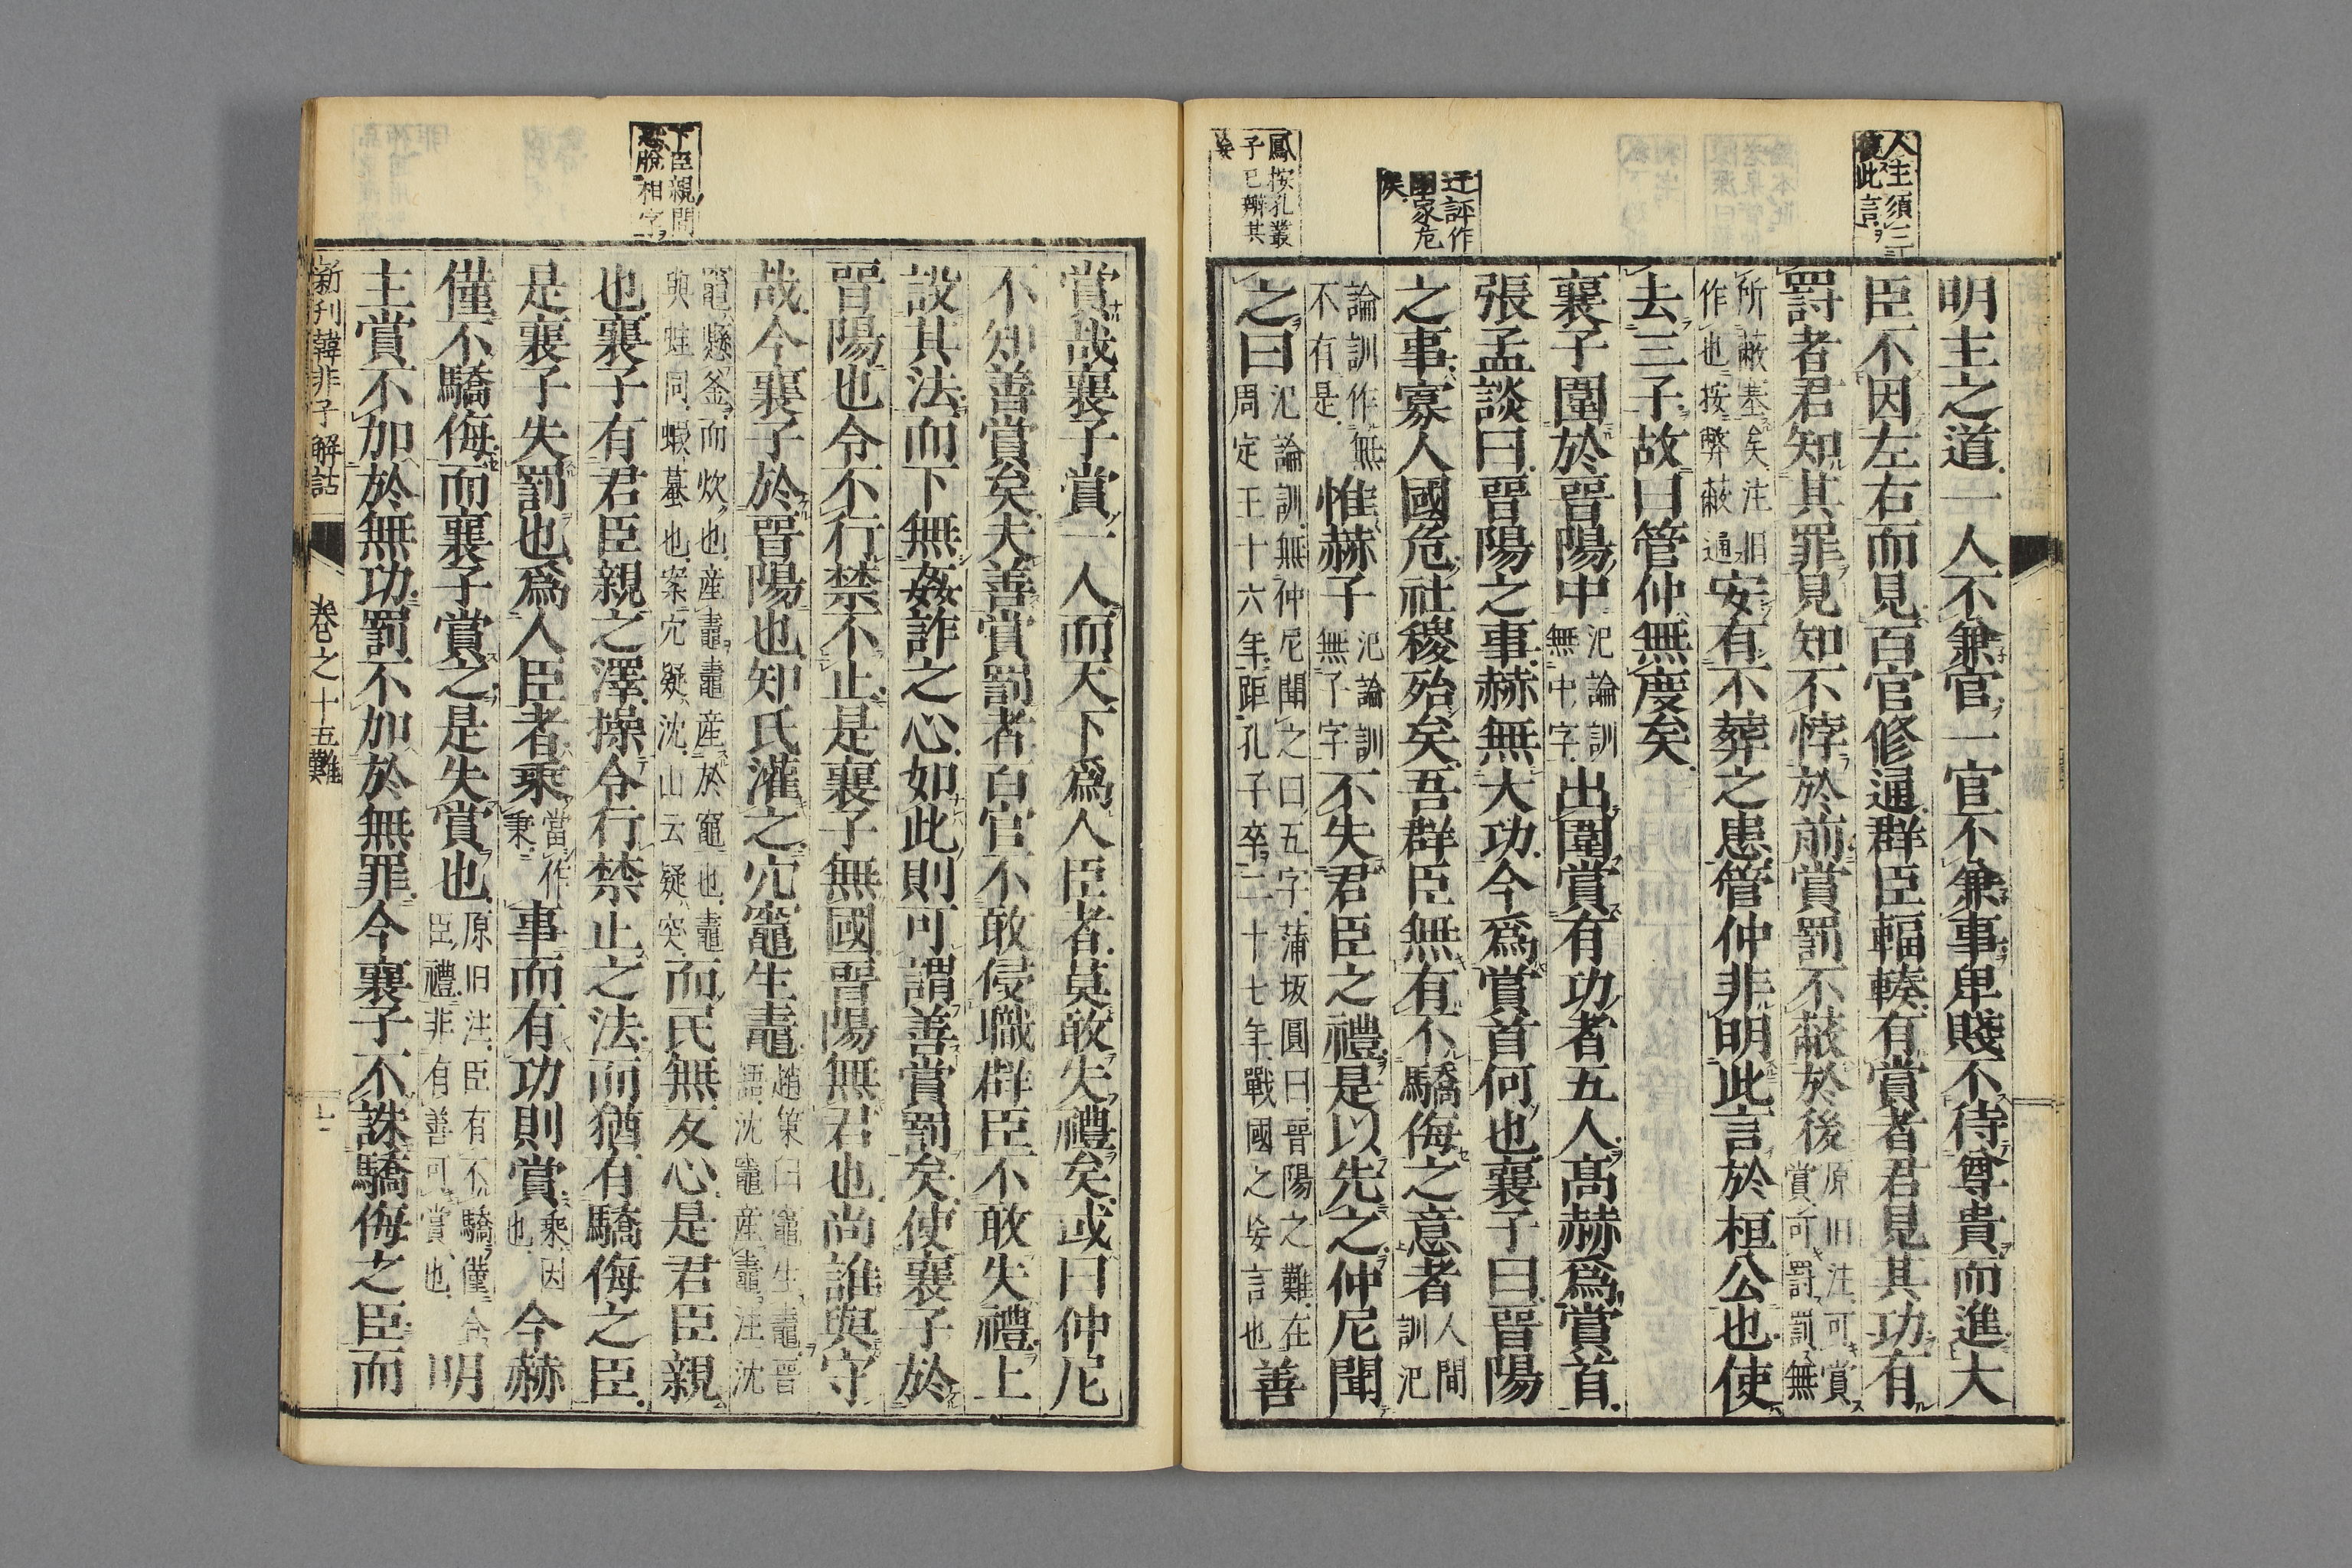 人主須三
復此言
明主之道一人不兼官一官不兼事卑賤不待尊貴而進大
臣不因左右而見百官修通群臣輻輳有賞者君見其功有
罰者君知其罪見知不悖於前賞罰不蔽於後
原旧注可賞
賞可罰罰無
所蔽塞矣注旧
作也按弊蔽通
安有不葬之患管仲非明此言於桓公也使
去三子故曰管仲無度矣
襄子圍於晋陽中
氾論訓
無中字
出圍賞有功者五人高赫爲賞首
張孟談曰晋陽之事赫無大功今爲賞首何也襄子曰晋陽
迂評作
國家危
矣
之事寡人國危社稷殆矣吾群臣無有不驕侮之意者
人間
訓氾
論訓作無
不有是
惟赫子
氾論訓
無子字
不失君臣之禮是以先之仲尼聞
鳳按孔叢
子已辨其
妄
之曰
氾論訓無仲尼聞之曰五字蒲坂圓曰晋陽之難在
周定王十六年距孔子卒二十七年戰國之妄言也
善
賞哉襄子賞一人而天下爲人臣者莫敢失禮矣或曰仲尼
不知善賞矣夫善賞罰者百官不敢侵職群臣不敢失禮上
設其法而下無姦詐之心如此則可謂善賞罰矣使襄子於
晋陽也令不行禁不止是襄子無國晋陽無君也尚誰與守
哉今襄子於晋陽也知氏灌之穴竈生鼃
趙策曰竈生鼃晋
語沈竈産鼃注沈
竈懸釜而炊也産鼃鼃産於竈也鼃
與蛙同蝦蟇也案穴疑沈山云疑突
而民無反心是君臣親
下臣親間
恐脫相字
也襄子有君臣親之澤操令行禁止之法而猶有驕侮之臣
是襄子失罰也爲人臣者乘
當作
秉
事而有功則賞
乘因
也
今赫
僅不驕侮而襄子賞之是失賞也
原旧注臣有不驕僅合
臣禮非有善可賞也
明
主賞不加於無功罰不加於無罪今襄子不誅驕侮之臣而
新刊韓非子解詁 卷之十五難一